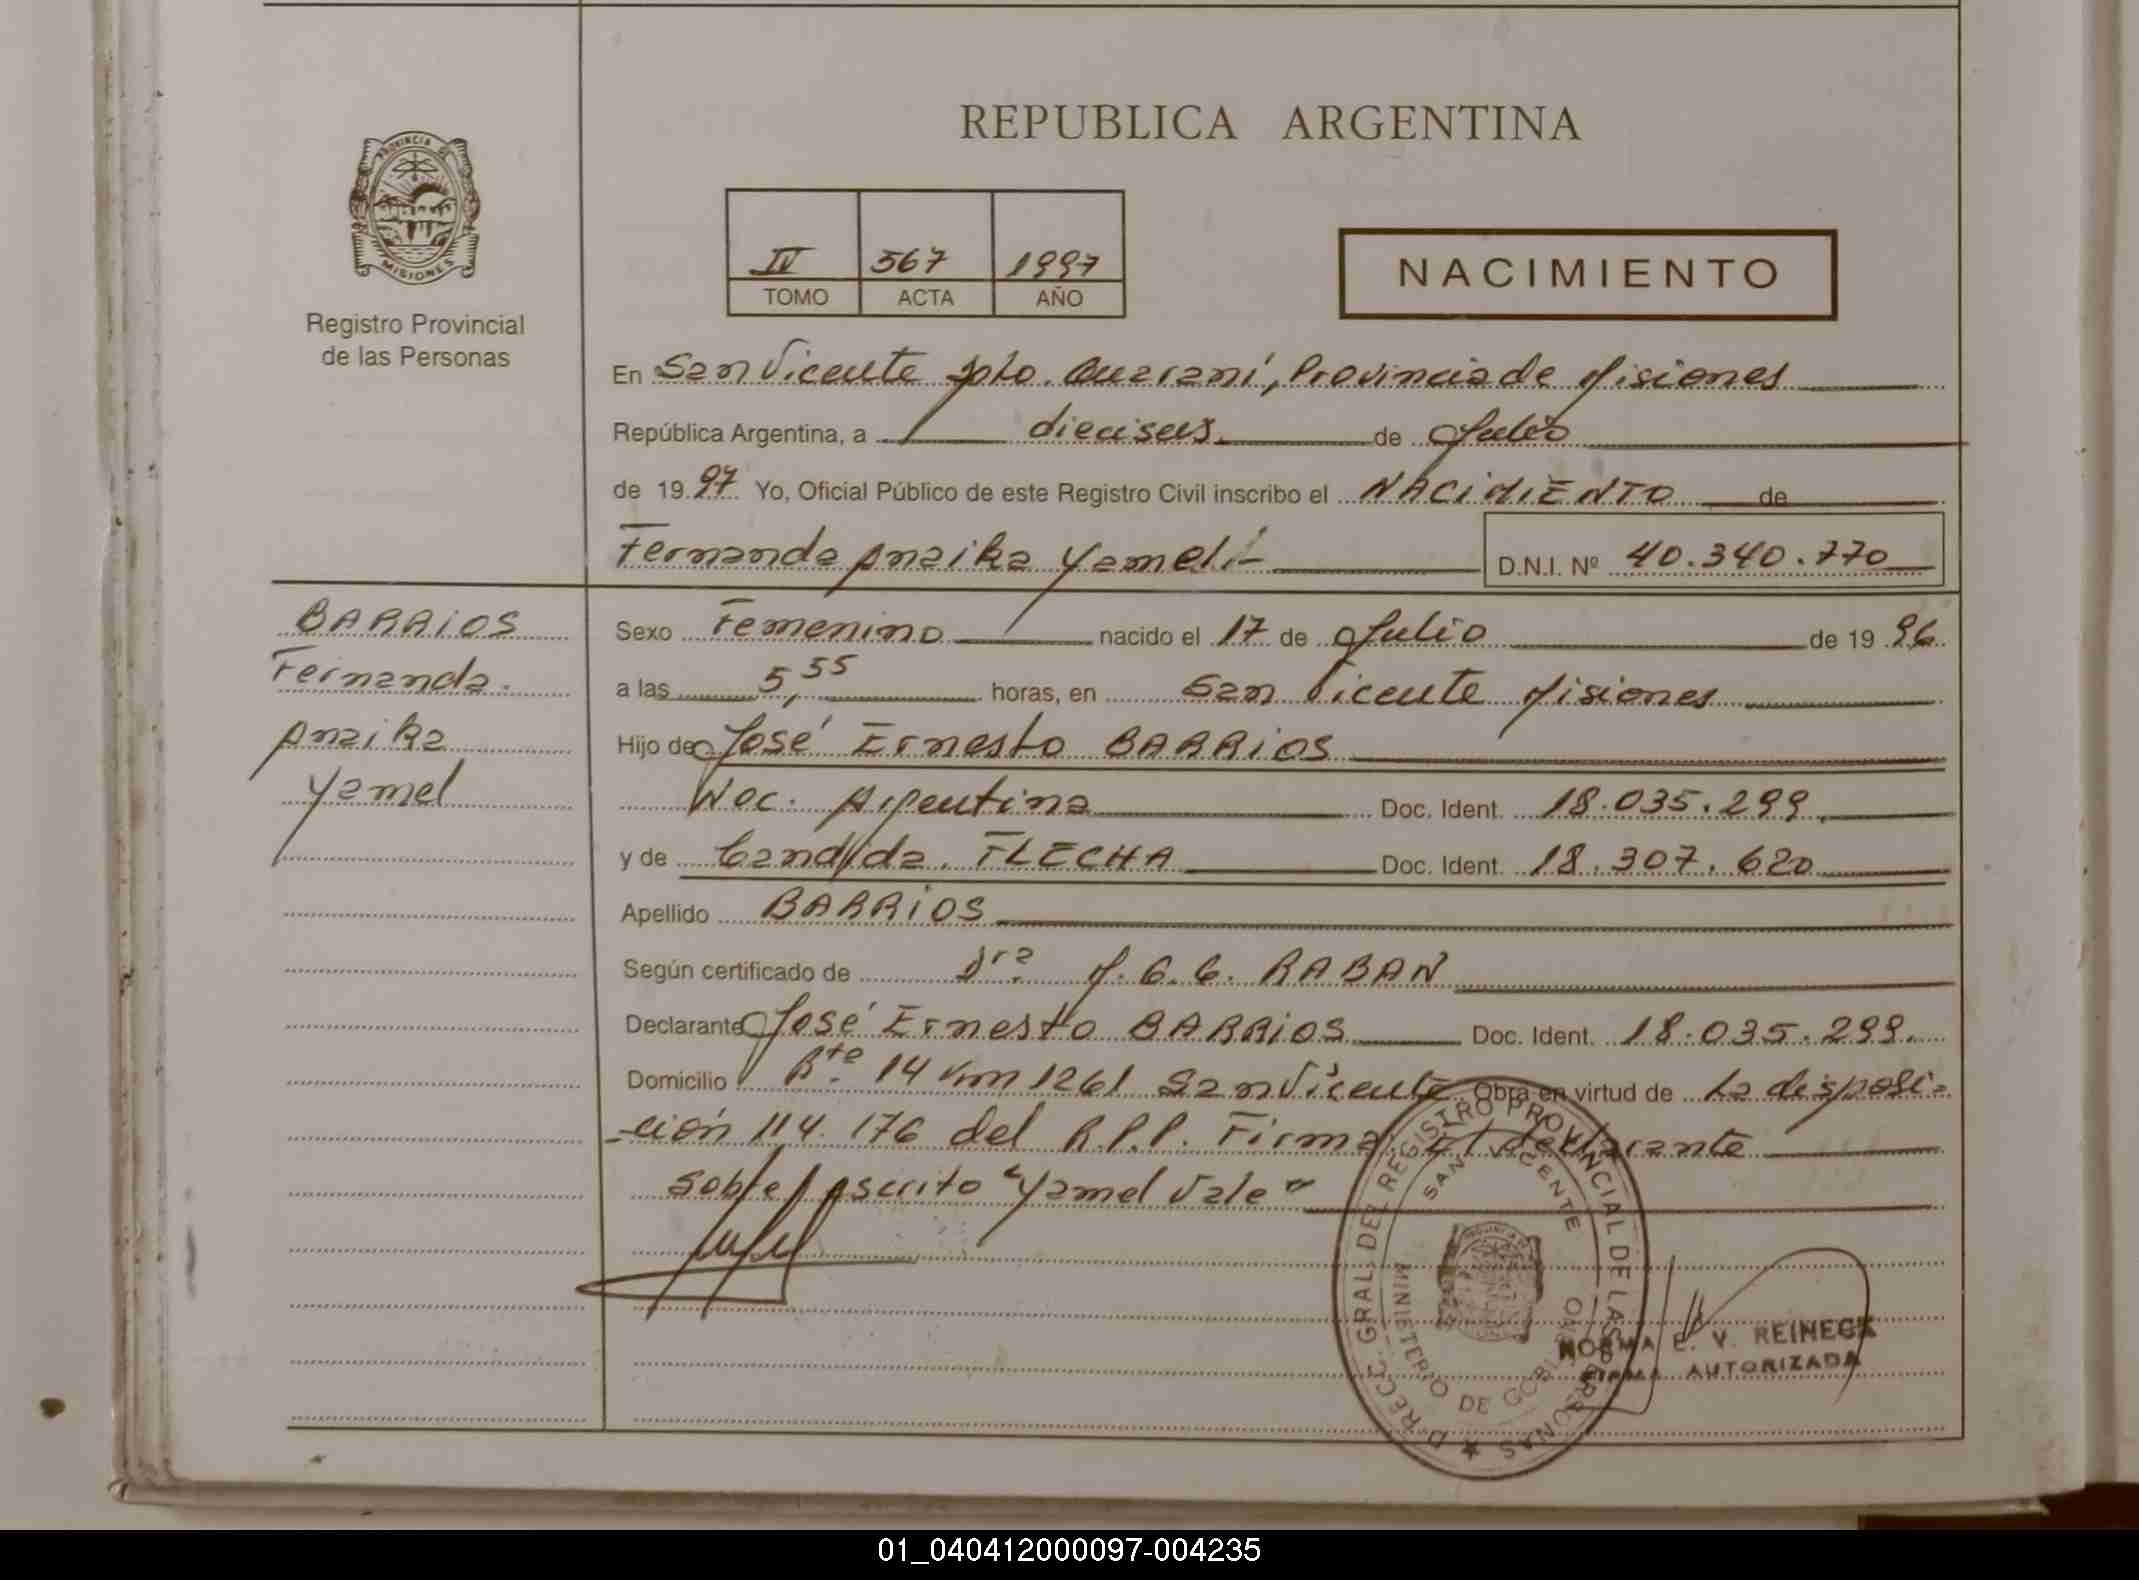 REPUBLICA ARGENTINA
PROVINCIA DE MISIONES
Registro Provincial
de las Personas
IV 567 1997
TOMO ACTA AÑO
NACIMIENTO
En San Vicente Dpto. Guaraní, Provincia de Misiones
República Argentina, a dieciseis de Julio
de 1997 Yo, Oficial Público de este Registro Civil inscribo el NACIMIENTO de
Fernanda Anaika Yamel.-
D.N.I. Nº 40.340.770
BARRIOS
Fernanda.
Anaika
Yamel
Sexo Femenino nacido el 17 de Julio de 1996.
a las 5,55 horas, en San Vicente Misiones
Hijo de José Ernesto BARRIOS
Nac. Argentina Doc. Ident. 18.035.299.
y de Candida. FLECHA Doc. Ident. 18.307.620
Apellido BARRIOS
Según certificado de Dra M.G.G. RABAN
Declarante José Ernesto BARRIOS Doc. Ident. 18.035.299.
Domicilio Rta 14 Km 1261 San Vicente Obra en virtud de La disposi-
-ción 114.176 del R.P.P. Firma: El declarante
Sobre Ascrito "Yamel Vale"
DIRECC. GRAL. DEL REGISTRO PROVINCIAL DE LAS PERSONAS
SAN VICENTE
MINISTERIO DE GOBIERNO
NORMA E. V. REINECK
FIRMA AUTORIZADA
01_040412000097-004235